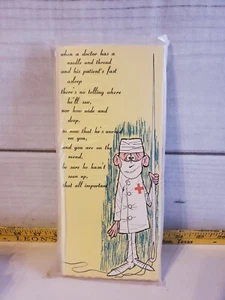 when a doctor has a
needle and thread
and his patient's fast
asleep
there's no telling where
he'll sew,
nor how wide and
deep,
so now that he's worked
on you,
and you are on the
mend,
be sure he hasn't
sewn up,
that all important
LEON'S